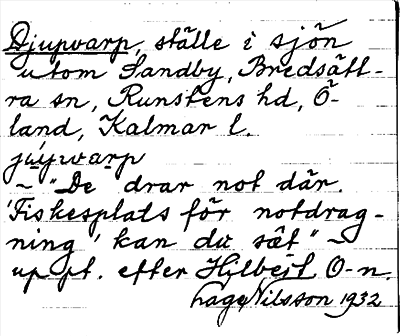 Djupvarp, ställe i sjön
utom Sandby, Bredsätt-
ra sn, Runstens hd, Ö-
land, Kalmar l.
júpvarp
~ "De drar not där.
'Fiskesplats för notdrag-
ning' kan du sät" ~
uppt. efter Hilbert O-n.
Lage Nilsson 1932